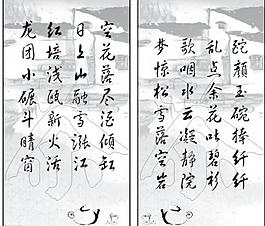 酡颜玉碗捧纤纤
乱点余花吐碧衫
歌咽水云凝静院
梦惊松雪落空岩
空花落尽酒倾缸
日上山融雪涨江
红焙浅瓯新火活
龙团小碾斗晴窗